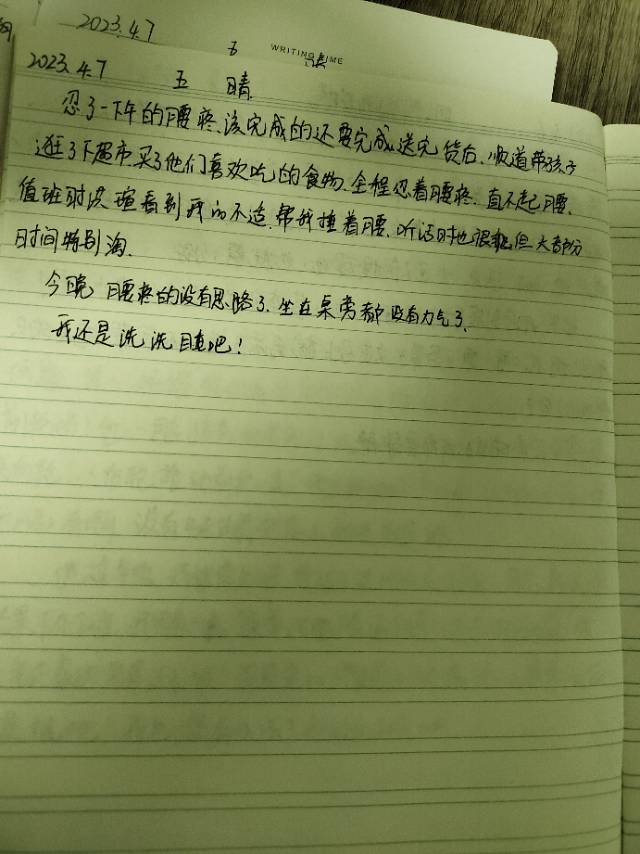 2023.4.7
五
WRITING TIME
2023.4.7 五 晴
忍了一下午的腰疼.该完成的还要完成.送完货后.顺道带孩子
逛了下超市.买了他们喜欢吃的食物.全程忍着腰疼.直不起腰.
值班时洪瑄看到我的不适.帮我捶着腰.听话时也很乖.但大部分
时间特别淘.
今晚腰疼的没有思路了.坐在桌旁都没有力气了.
我还是洗洗睡吧!